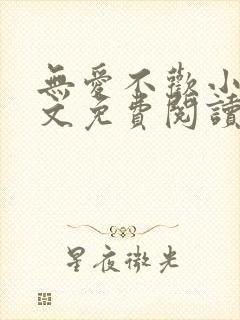 無愛不歡小
文免費閱讀
星夜微光